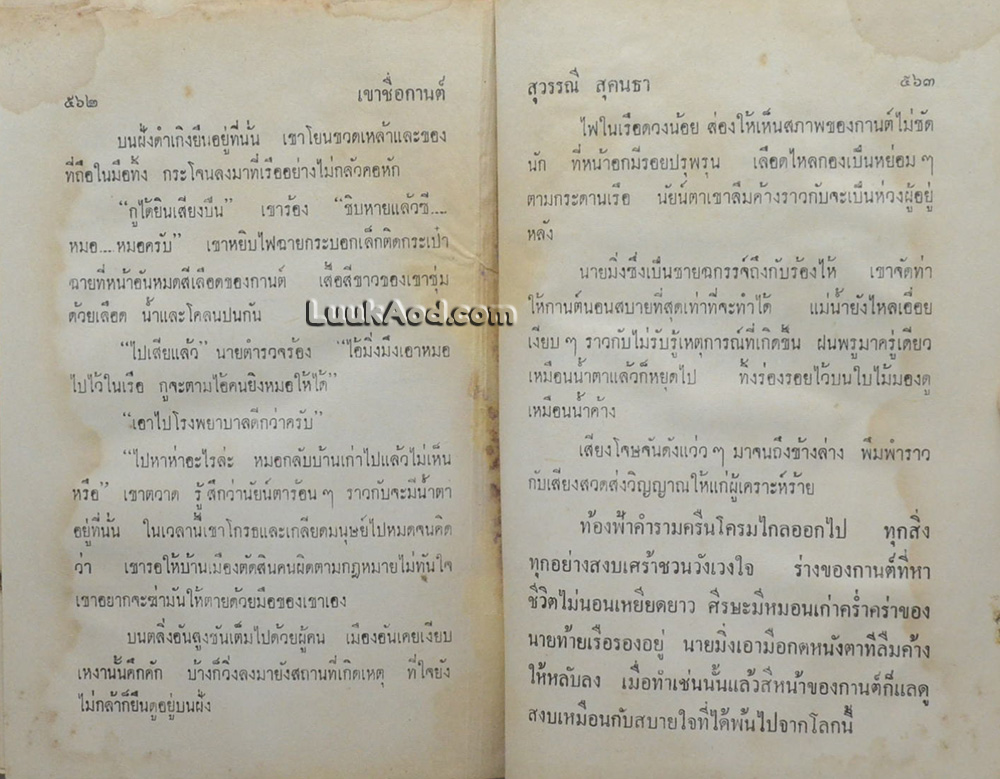 ๕๖๒
เขาชื่อกานต์
บนฝั่งดำเกิงยืนอยู่ที่นั้น เขาโยนขวดเหล้าและของ
ที่ถือในมือทิ้ง กระโจนลงมาที่เรืออย่างไม่กลัวคอหัก
“กูได้ยินเสียงปืน” เขาร้อง “ชิบหายแล้วซี....
หมอ....หมอครับ” เขาหยิบไฟฉายกระบอกเล็กติดกระเป๋า
ฉายที่หน้าอันหมดสีเลือดของกานต์ เสื้อสีขาวของเขาชุ่ม
ด้วยเลือด น้ำและโคลนปนกัน
“ไปเสียแล้ว” นายตำรวจร้อง “ไอ้มิ่งมึงเอาหมอ
ไปไว้ในเรือ กูจะตามไอ้คนยิงหมอให้ได้”
“เอาไปโรงพยาบาลดีกว่าครับ”
“ไปหาห่าอะไรล่ะ หมอกลับบ้านเก่าไปแล้วไม่เห็น
หรือ” เขาตวาด รู้สึกว่านัยน์ตาร้อน ๆ ราวกับจะมีน้ำตา
อยู่ที่นั้น ในเวลานี้เขาโกรธและเกลียดมนุษย์ไปหมดจนคิด
ว่า เขารอให้บ้านเมืองตัดสินคนผิดตามกฎหมายไม่ทันใจ
เขาอยากจะฆ่ามันให้ตายด้วยมือของเขาเอง
บนตลิ่งอันสูงชันเต็มไปด้วยผู้คน เมืองอันเคยเงียบ
เหงานั้นคึกคัก บ้างก็วิ่งลงมายังสถานที่เกิดเหตุ ที่ใจยัง
ไม่กล้าก็ยืนดูอยู่บนฝั่ง
สุวรรณี สุคนธา
๕๖๓
ไฟในเรือดวงน้อย ส่องให้เห็นสภาพของกานต์ไม่ชัด
นัก ที่หน้าอกมีรอยปรุพรุน เลือดไหลกองเป็นหย่อม ๆ
ตามกระดานเรือ นัยน์ตาเขาลืมค้างราวกับจะเป็นห่วงผู้อยู่
หลัง
นายมิ่งซึ่งเป็นชายฉกรรจ์ถึงกับร้องไห้ เขาจัดท่า
ให้กานต์นอนสบายที่สุดเท่าที่จะทำได้ แม่น้ำยังไหลเอื่อย
เงียบ ๆ ราวกับไม่รับรู้เหตุการณ์ที่เกิดขึ้น ฝนพรูมาครู่เดียว
เหมือนน้ำตาแล้วก็หยุดไป ทิ้งร่องรอยไว้บนใบไม้มองดู
เหมือนน้ำค้าง
เสียงโจษจันดังแว่ว ๆ มาจนถึงข้างล่าง พึมพำราว
กับเสียงสวดส่งวิญญาณให้แก่ผู้เคราะห์ร้าย
ท้องฟ้าคำรามครืนโครมไกลออกไป ทุกสิ่ง
ทุกอย่างสงบเศร้าชวนวังเวงใจ ร่างของกานต์ที่หา
ชีวิตไม่นอนเหยียดยาว ศีรษะมีหมอนเก่าคร่ำคร่าของ
นายท้ายเรือรองอยู่ นายมิ่งเอามือกดหนังตาที่ลืมค้าง
ให้หลับลง เมื่อทำเช่นนั้นแล้วสีหน้าของกานต์ก็แลดู
สงบเหมือนกับสบายใจที่ได้พ้นไปจากโลกนี้
LuukAod.com